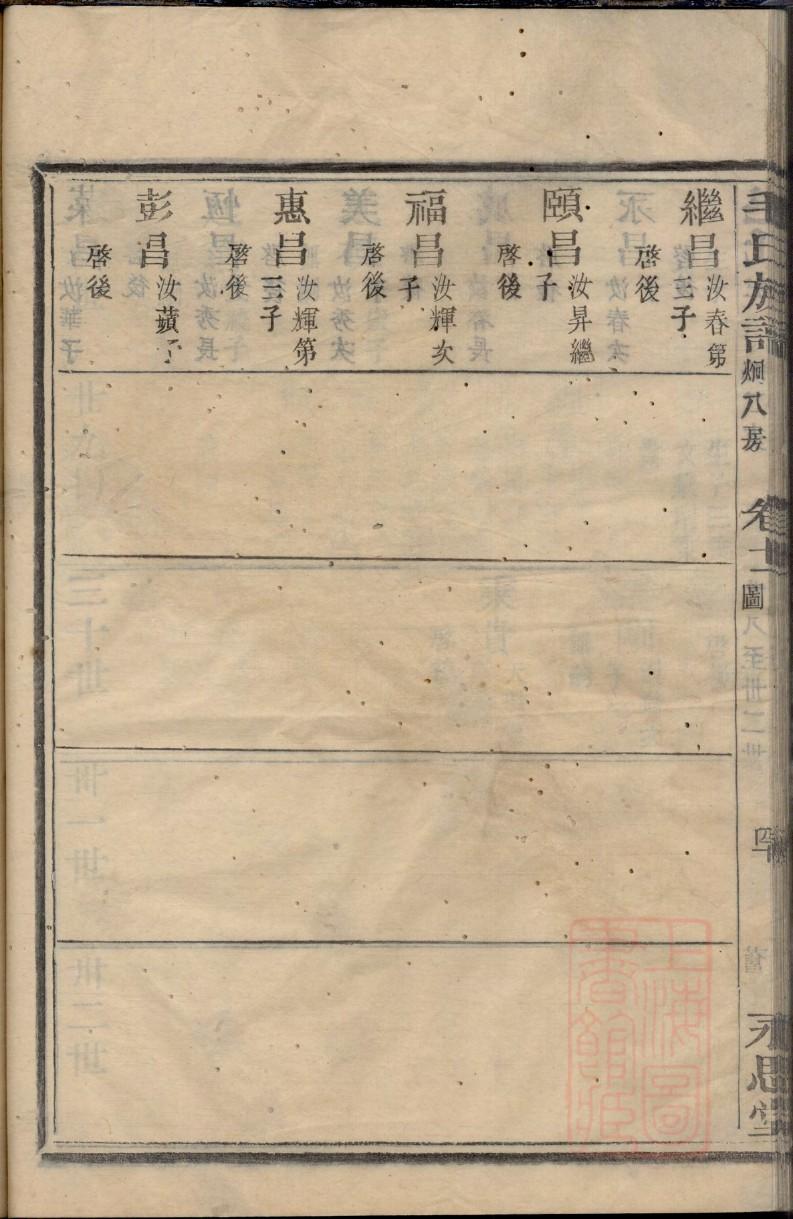 氏族譜 烱八房 卷十二 圖 永思堂
繼昌 汝春第三子 啓後
頤昌 汝昇繼子 啓後
福昌 汝輝次子 啓後
惠昌 汝輝第三子 啓後
彭昌 汝蘋子 啓後
上海圖書館藏